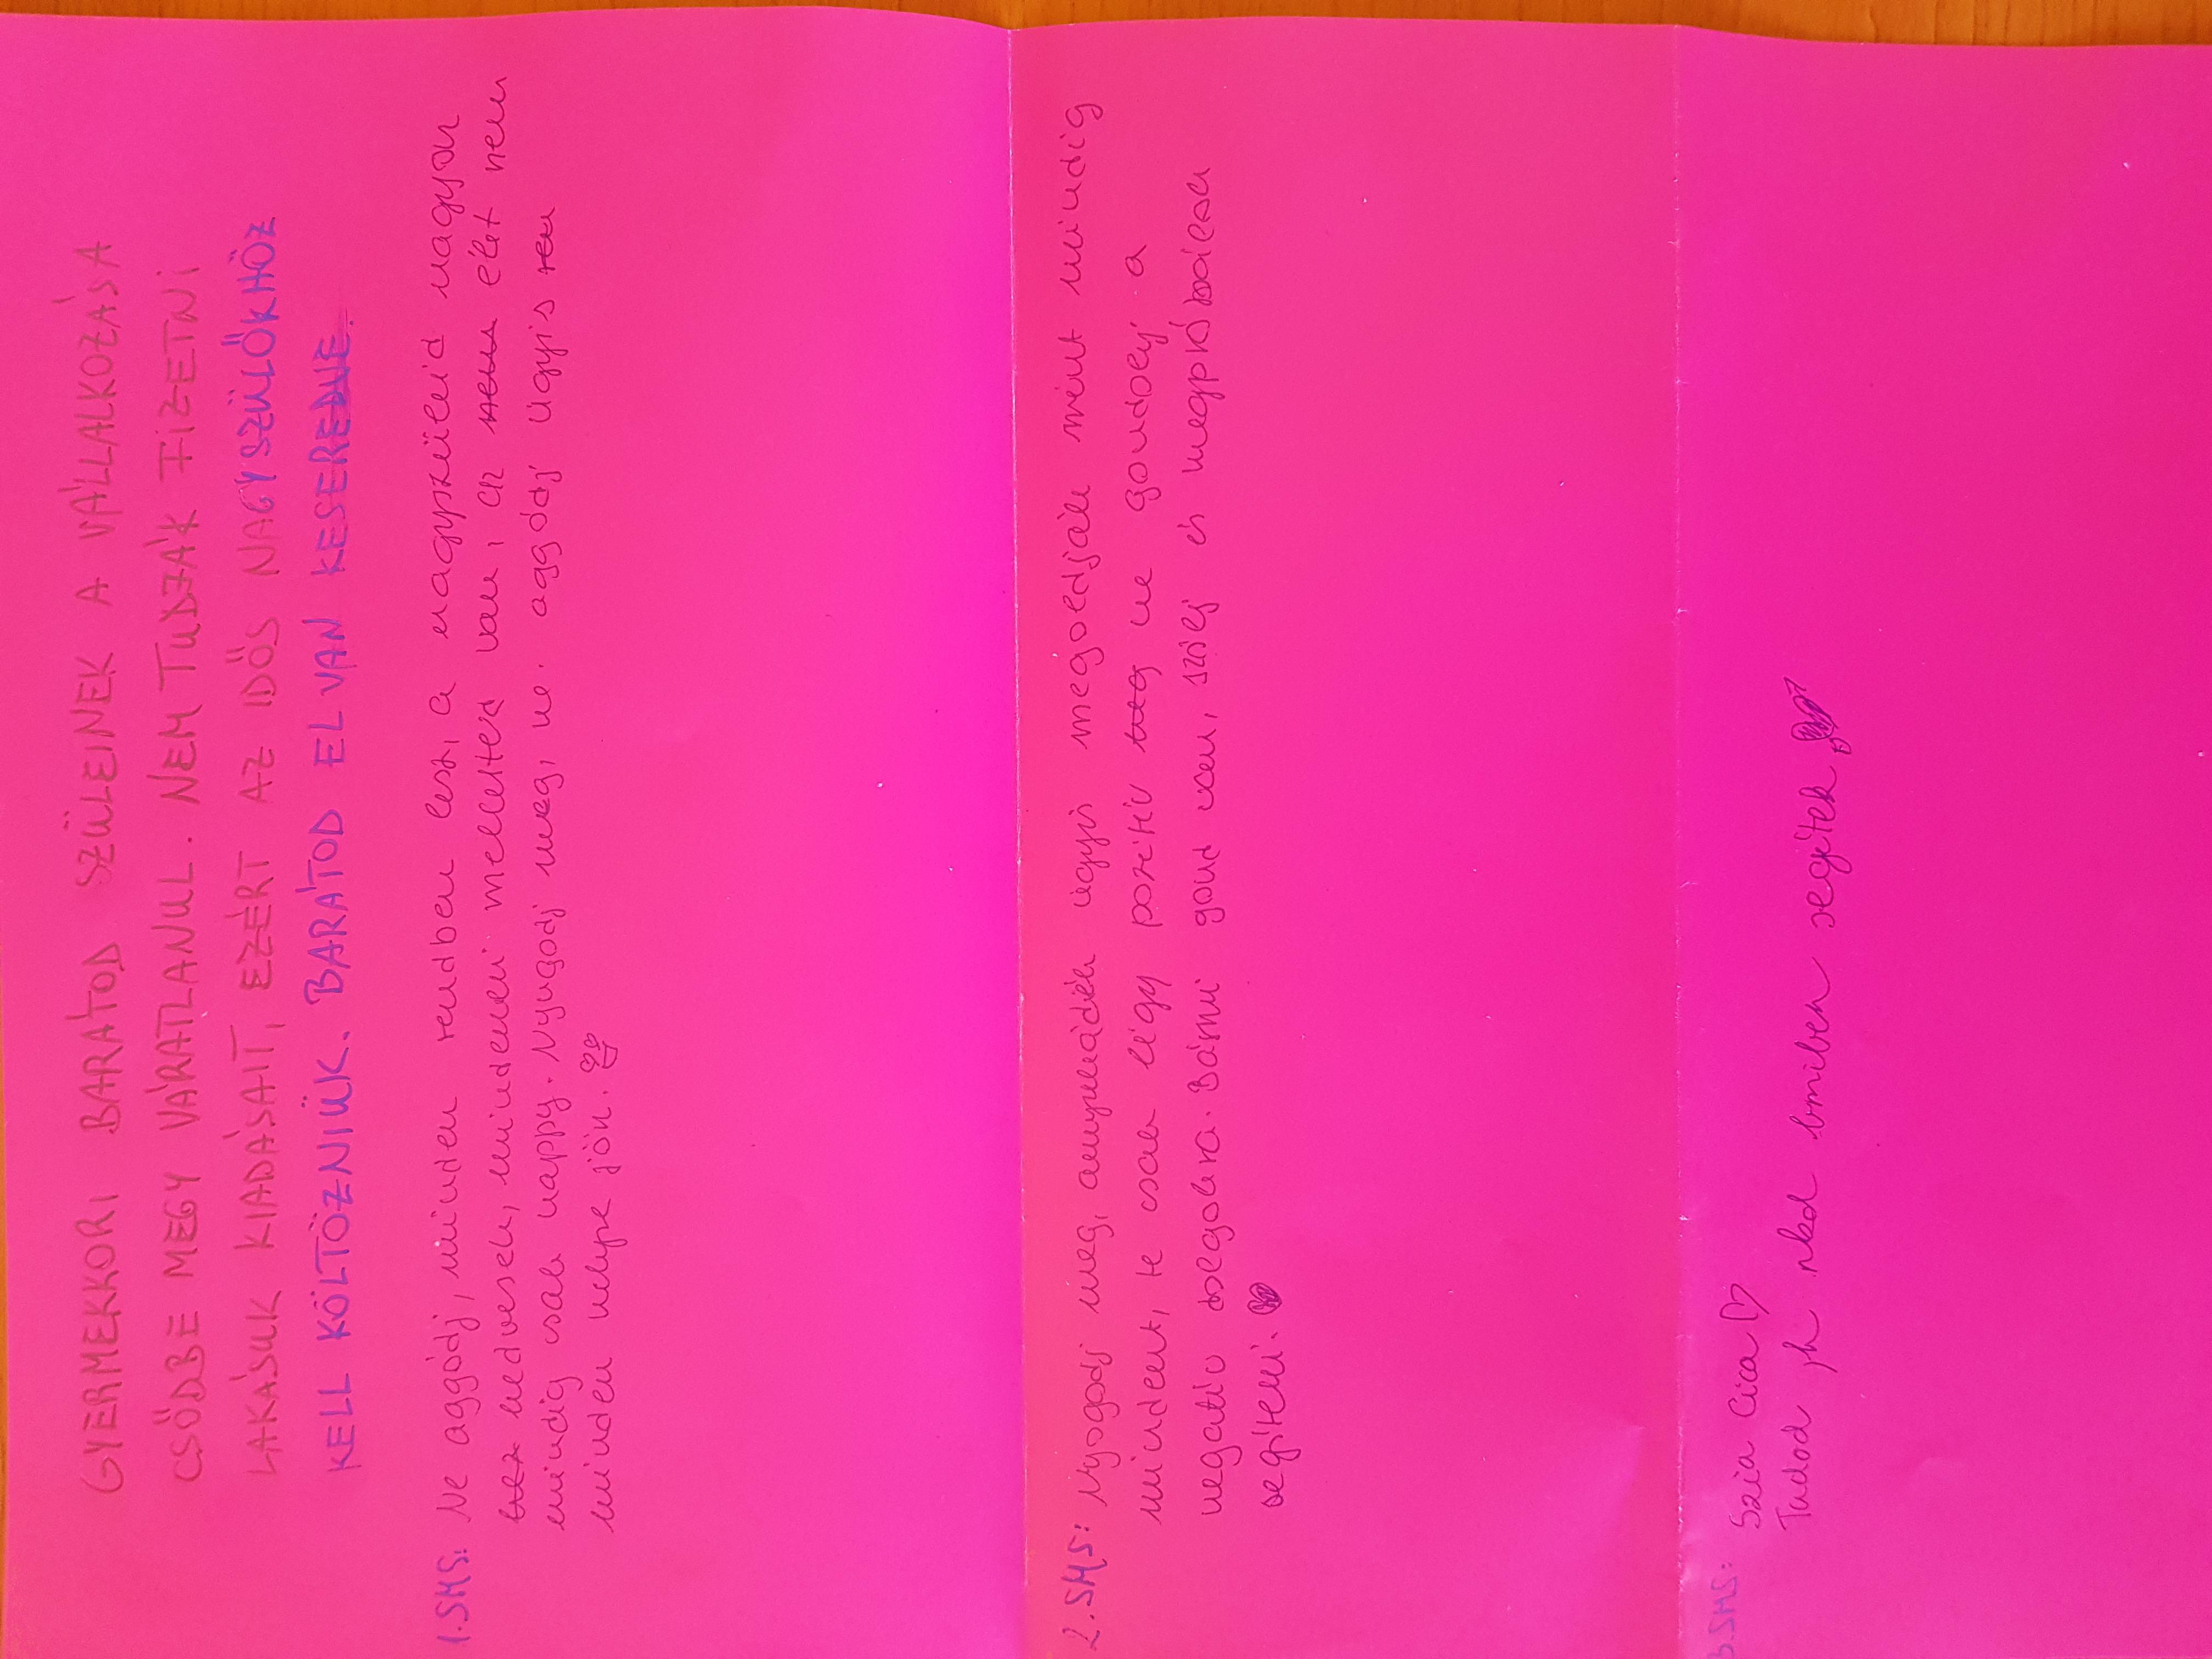 GYERMEKKORI BARÁTOD SZÜLEINEK A VÁLLALKOZÁSA
CSŐDBE MEGY VÁRATLANUL. NEM TUDJÁK FIZETNI
LAKÁSUK KIADÁSAIT, EZÉRT AZ IDŐS NAGYSZÜLŐKHÖZ
KELL KÖLTÖZNIÜK. BARÁTOD EL VAN KESEREDVE.
1. SMS: Ne aggódj, minden rendben lesz, a nagyszüleid nagyon
kedvesek, mindenki melletted van, az élet nem
mindig csak happy. Nyugodj meg, ne. aggódj úgyis
minden helyre jön.
2. SMS: Nyogodj meg, anyukádék úgyis megoldják mint mindig
mindent, te csak légy pozitív ne gondolj a
negatív dolgokra. Bármi gond van, szólj és megpróbálok
segíteni.
3. SMS: Szia Cica
Tudod jh nked bmiben segítek